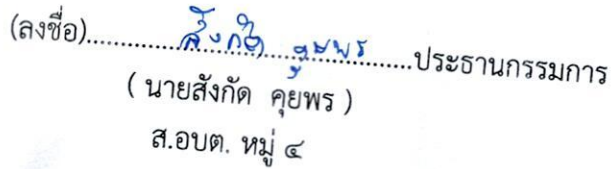 (ลงชื่อ)..........สังกัด คุยพร..........ประธานกรรมการ
( นายสังกัด คุยพร )
ส.อบต. หมู่ ๔